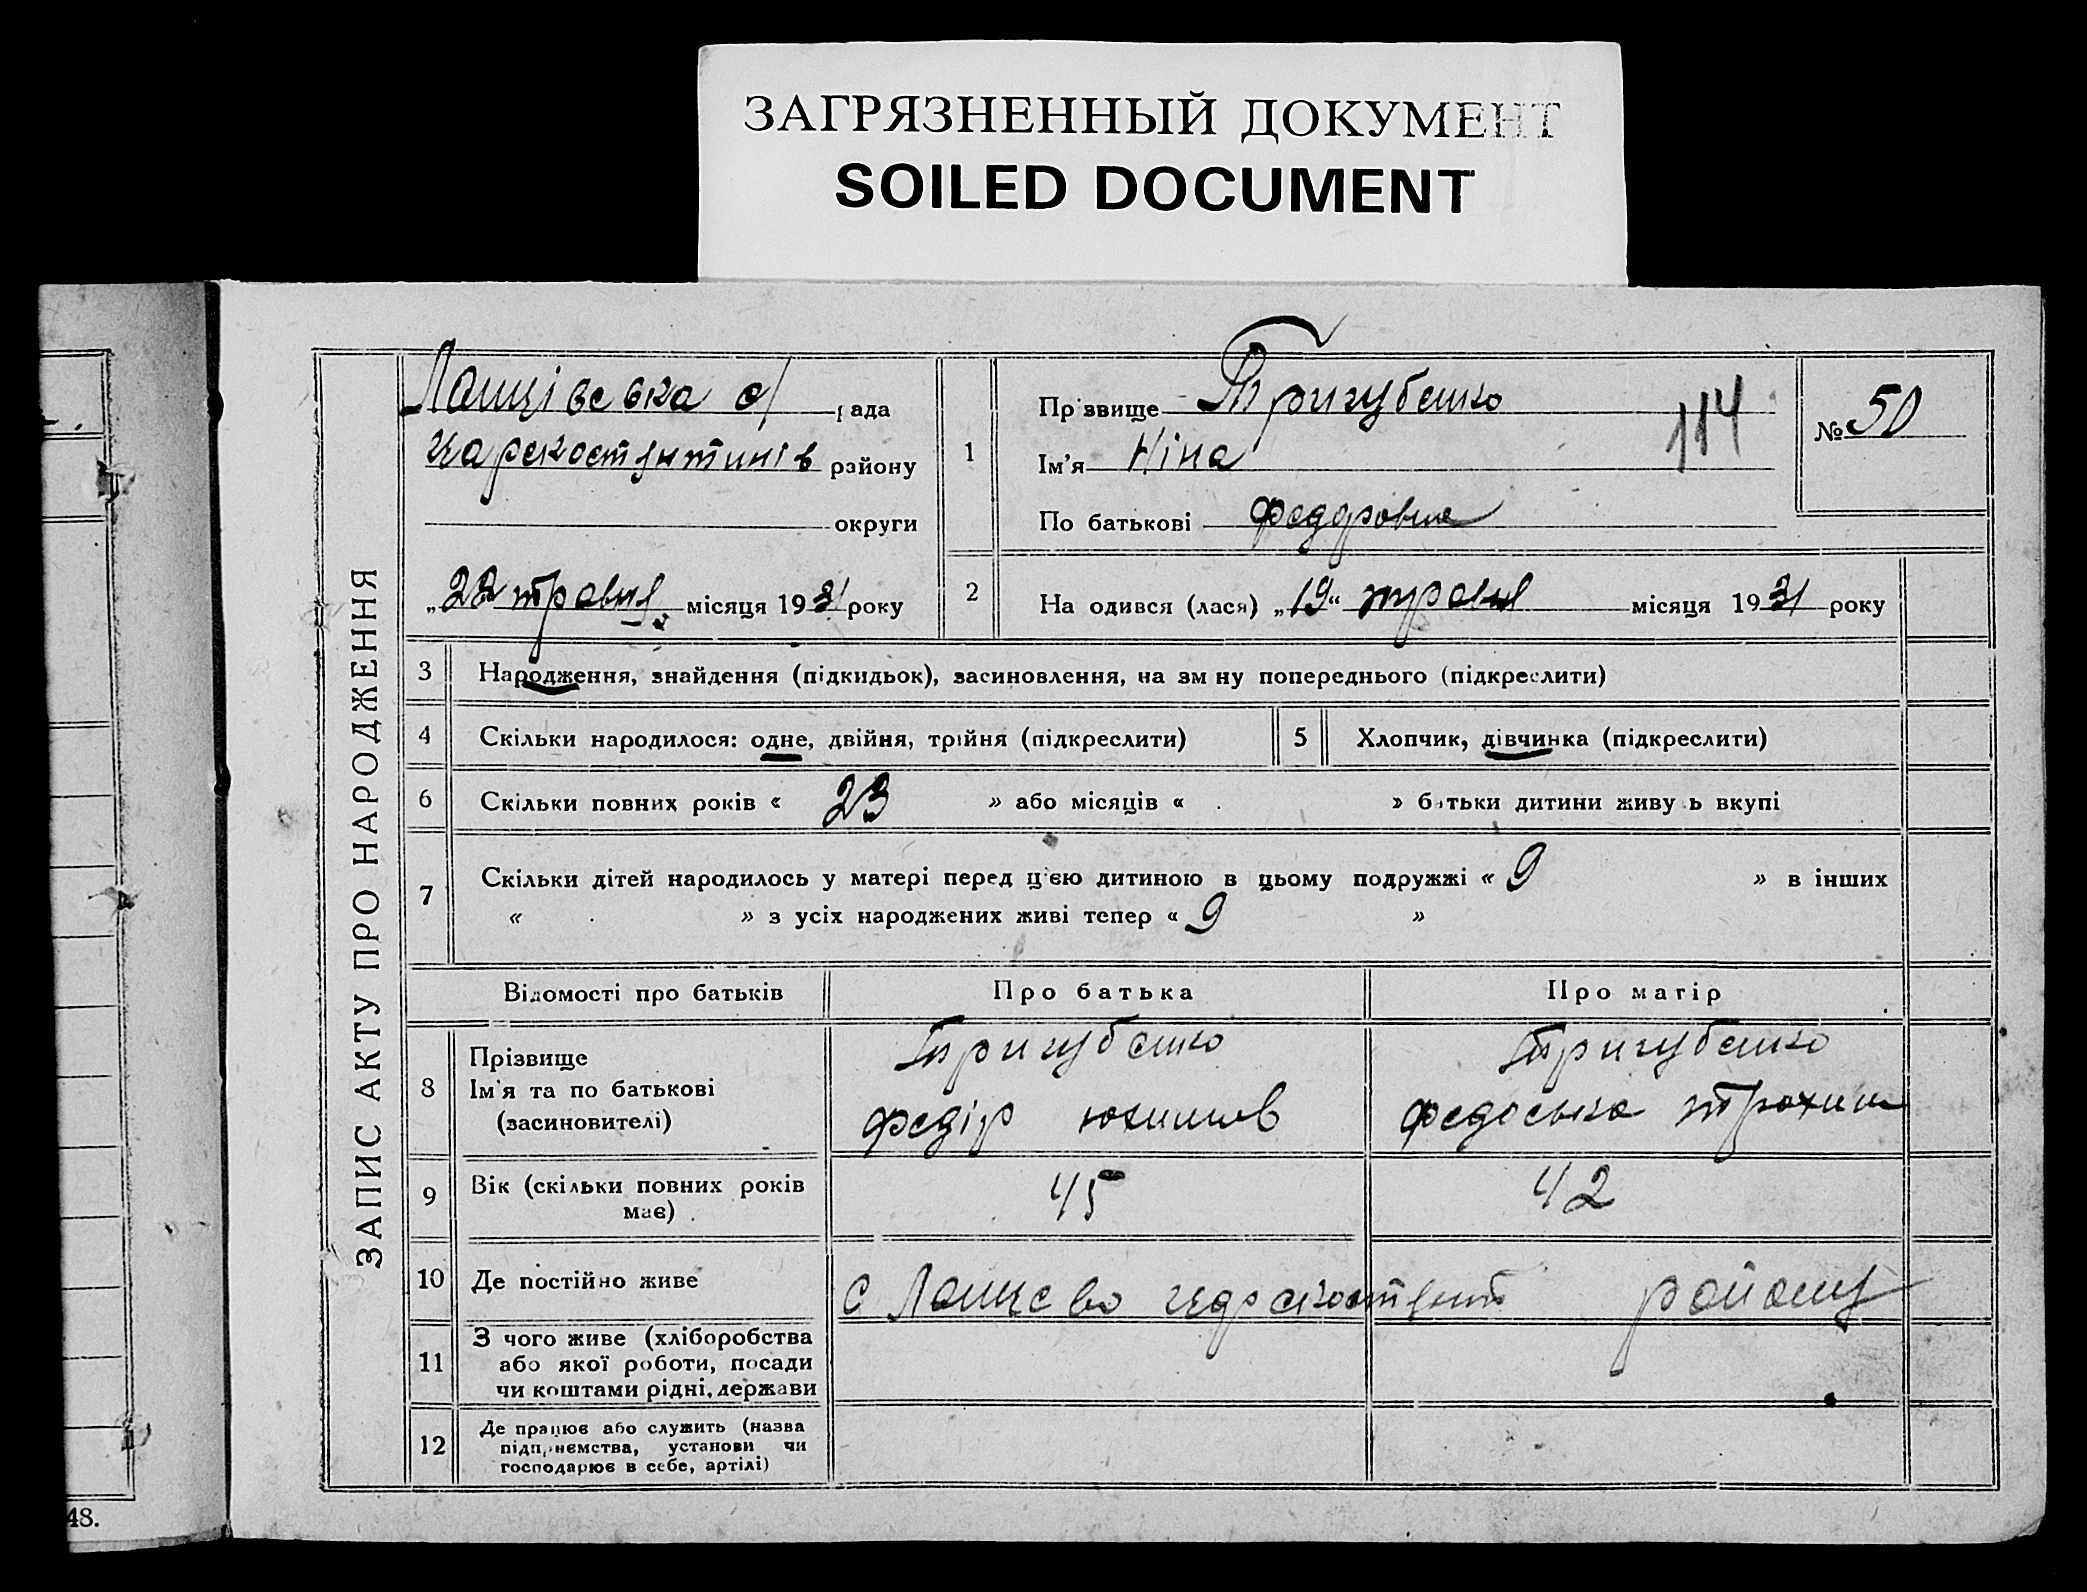 ЗАГРЯЗНЕННЫЙ ДОКУМЕНТ
SOILED DOCUMENT
ЗАПИС АКТУ ПРО НАРОДЖЕННЯ
Лящівська с/ рада
району
округи
„22 травня місяця 1931 року
1
Прізвище Тригубенко
Ім'я Ніна
По батькові Федоровна
114
№ 50
2 На одився (лася) „19“ травня місяця 1931 року
3 Народження, знайдення (підкидьок), засиновлення, на зм ну попереднього (підкреслити)
4 Скільки народилося: одне, двійня, трійня (підкреслити)
5 Хлопчик, дівчинка (підкреслити)
6 Скільки повних років « 23 » або місяців « » батьки дитини живу ь вкупі
7 Скільки дітей народилось у матері перед цією дитиною в цьому подружжі « 9 » в інших
« » з усіх народжених живі тепер « 9 »
Відомості про батьків Про батька Про матір
8 Прізвище
Ім'я та по батькові
(засиновителі)
Тригубенко
Федір Юхимов
Тригубенко
Федоська Трохим
9 Вік (скільки повних років
має)
45 42
10 Де постійно живе
с району
11 З чого живе (хліборобства
або якої роботи, посади
чи коштами рідні, держави
12 Де працює або служить (назва
підприємства, установи чи
господарює в себе, артілі)
48.